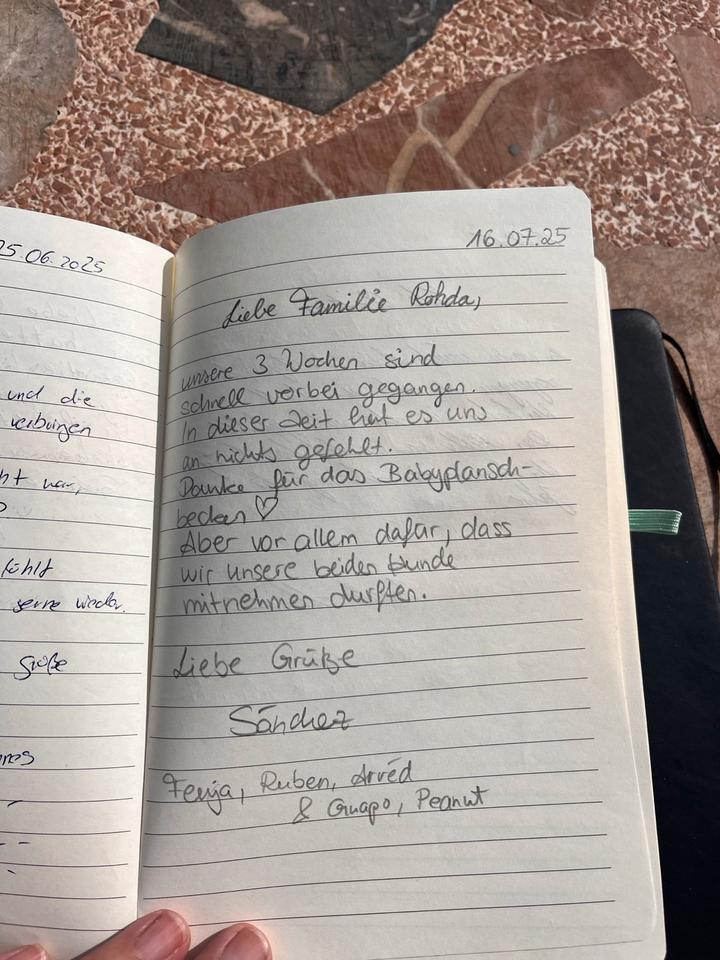 5.06.2025
und die
verbringen
ht war,
fühlt
gerne wieder.
Größe
16.07.25
Liebe Familie Rohda,
unsere 3 Wochen sind
schnell vorbei gegangen.
In dieser Zeit hat es uns
an nichts gefehlt.
Danke für das Babyplansch-
becken ♡
Aber vor allem dafür, dass
wir unsere beiden Hunde
mitnehmen durften.
Liebe Grüße
Sánchez
Fenja, Ruben, Arvéd
& Guapo, Peanut